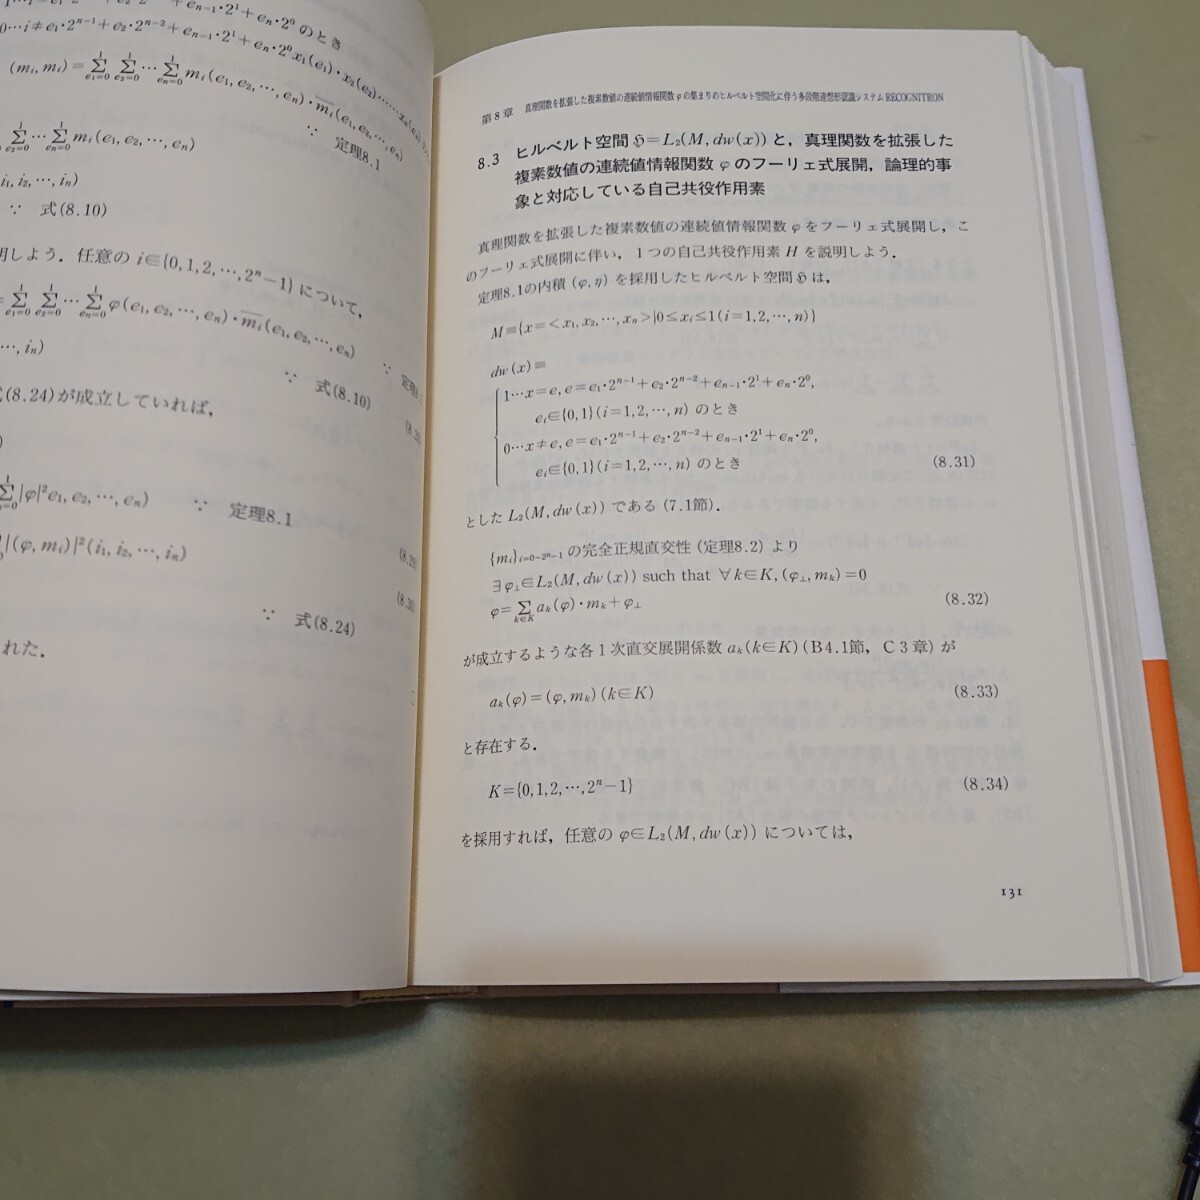 のとき
(m_i, m_i) = Σ_{e_1=0}^{1} Σ_{e_2=0}^{1} … Σ_{e_n=0}^{1} m_i(e_1, e_2, …, e_n)・m̅_i(e_1, e_2, …, e_n)
∵ 定理8.1
Σ_{e_2=0}^{1} … Σ_{e_n=0}^{1} m_i(e_1, e_2, …, e_n)
i_1, i_2, …, i_n)
∵ 式(8.10)
明しよう．任意の i∈{0, 1, 2, …, 2^n−1} について，
= Σ_{e_1=0}^{1} Σ_{e_2=0}^{1} … Σ_{e_n=0}^{1} φ(e_1, e_2, …, e_n)・m̅_i(e_1, e_2, …, e_n)
…, i_n)
∵ 式(8.10)
(8.24)が成立していれば，
|φ|^2 e_1, e_2, …, e_n) ∵ 定理8.1
|(φ, m_i)|^2(i_1, i_2, …, i_n)
∵ 式(8.24)
れた．
第8章 真理関数を拡張した複素数値の連続値情報関数 φ の集まりのヒルベルト空間化に伴う多段階連想形認識システム RECOGNITRON
8.3 ヒルベルト空間 ℌ=L_2(M, dw(x)) と，真理関数を拡張した
複素数値の連続値情報関数 φ のフーリェ式展開，論理的事
象と対応している自己共役作用素
真理関数を拡張した複素数値の連続値情報関数 φ をフーリェ式展開し，こ
のフーリェ式展開に伴い，1つの自己共役作用素 H を説明しよう．
定理8.1の内積 (φ, η) を採用したヒルベルト空間 ℌ は，
M≡{x=<x_1, x_2, …, x_n>|0≤x_i≤1(i=1, 2, …, n)}
dw(x)≡
1…x=e, e=e_1・2^{n−1}+e_2・2^{n−2}+e_{n−1}・2^1+e_n・2^0,
e_i∈{0, 1}(i=1, 2, …, n) のとき
0…x≠e, e=e_1・2^{n−1}+e_2・2^{n−2}+e_{n−1}・2^1+e_n・2^0,
e_i∈{0, 1}(i=1, 2, …, n) のとき (8.31)
とした L_2(M, dw(x)) である (7.1節)．
{m_i}_{i=0~2^n−1} の完全正規直交性 (定理8.2) より
∃φ_⊥∈L_2(M, dw(x)) such that ∀k∈K, (φ_⊥, m_k)=0
φ=Σ_{k∈K} a_k(φ)・m_k+φ_⊥ (8.32)
が成立するような各1次直交展開係数 a_k(k∈K) (B4.1節，C3章) が
a_k(φ)=(φ, m_k)(k∈K) (8.33)
と存在する．
K={0, 1, 2, …, 2^n−1} (8.34)
を採用すれば，任意の φ∈L_2(M, dw(x)) については，
131